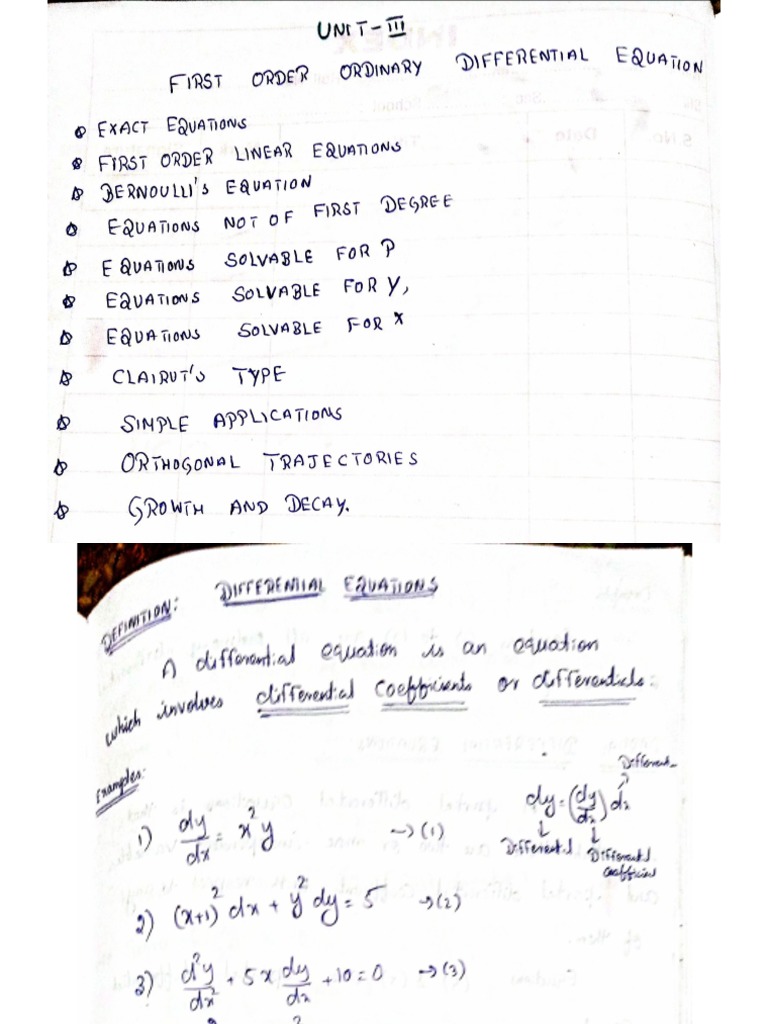 UNIT-III
FIRST ORDER ORDINARY DIFFERENTIAL EQUATION
EXACT EQUATIONS
FIRST ORDER LINEAR EQUATIONS
BERNOULLI'S EQUATION
EQUATIONS NOT OF FIRST DEGREE
EQUATIONS SOLVABLE FOR P
EQUATIONS SOLVABLE FOR Y,
EQUATIONS SOLVABLE FOR X
CLAIRUT'S TYPE
SIMPLE APPLICATIONS
ORTHOGONAL TRAJECTORIES
GROWTH AND DECAY.
DEFINITION: DIFFERENTIAL EQUATIONS
A differential equation is an equation
which involves differential coefficients or differentials:
Examples:
1) dy/dx = x²y → (1)
dy = (dy/dx) dx
Differential
Differential coefficien
2) (x+1)² dx + y² dy = 5 → (2)
3) d²y/dx² + 5x dy/dx + 10 = 0 → (3)